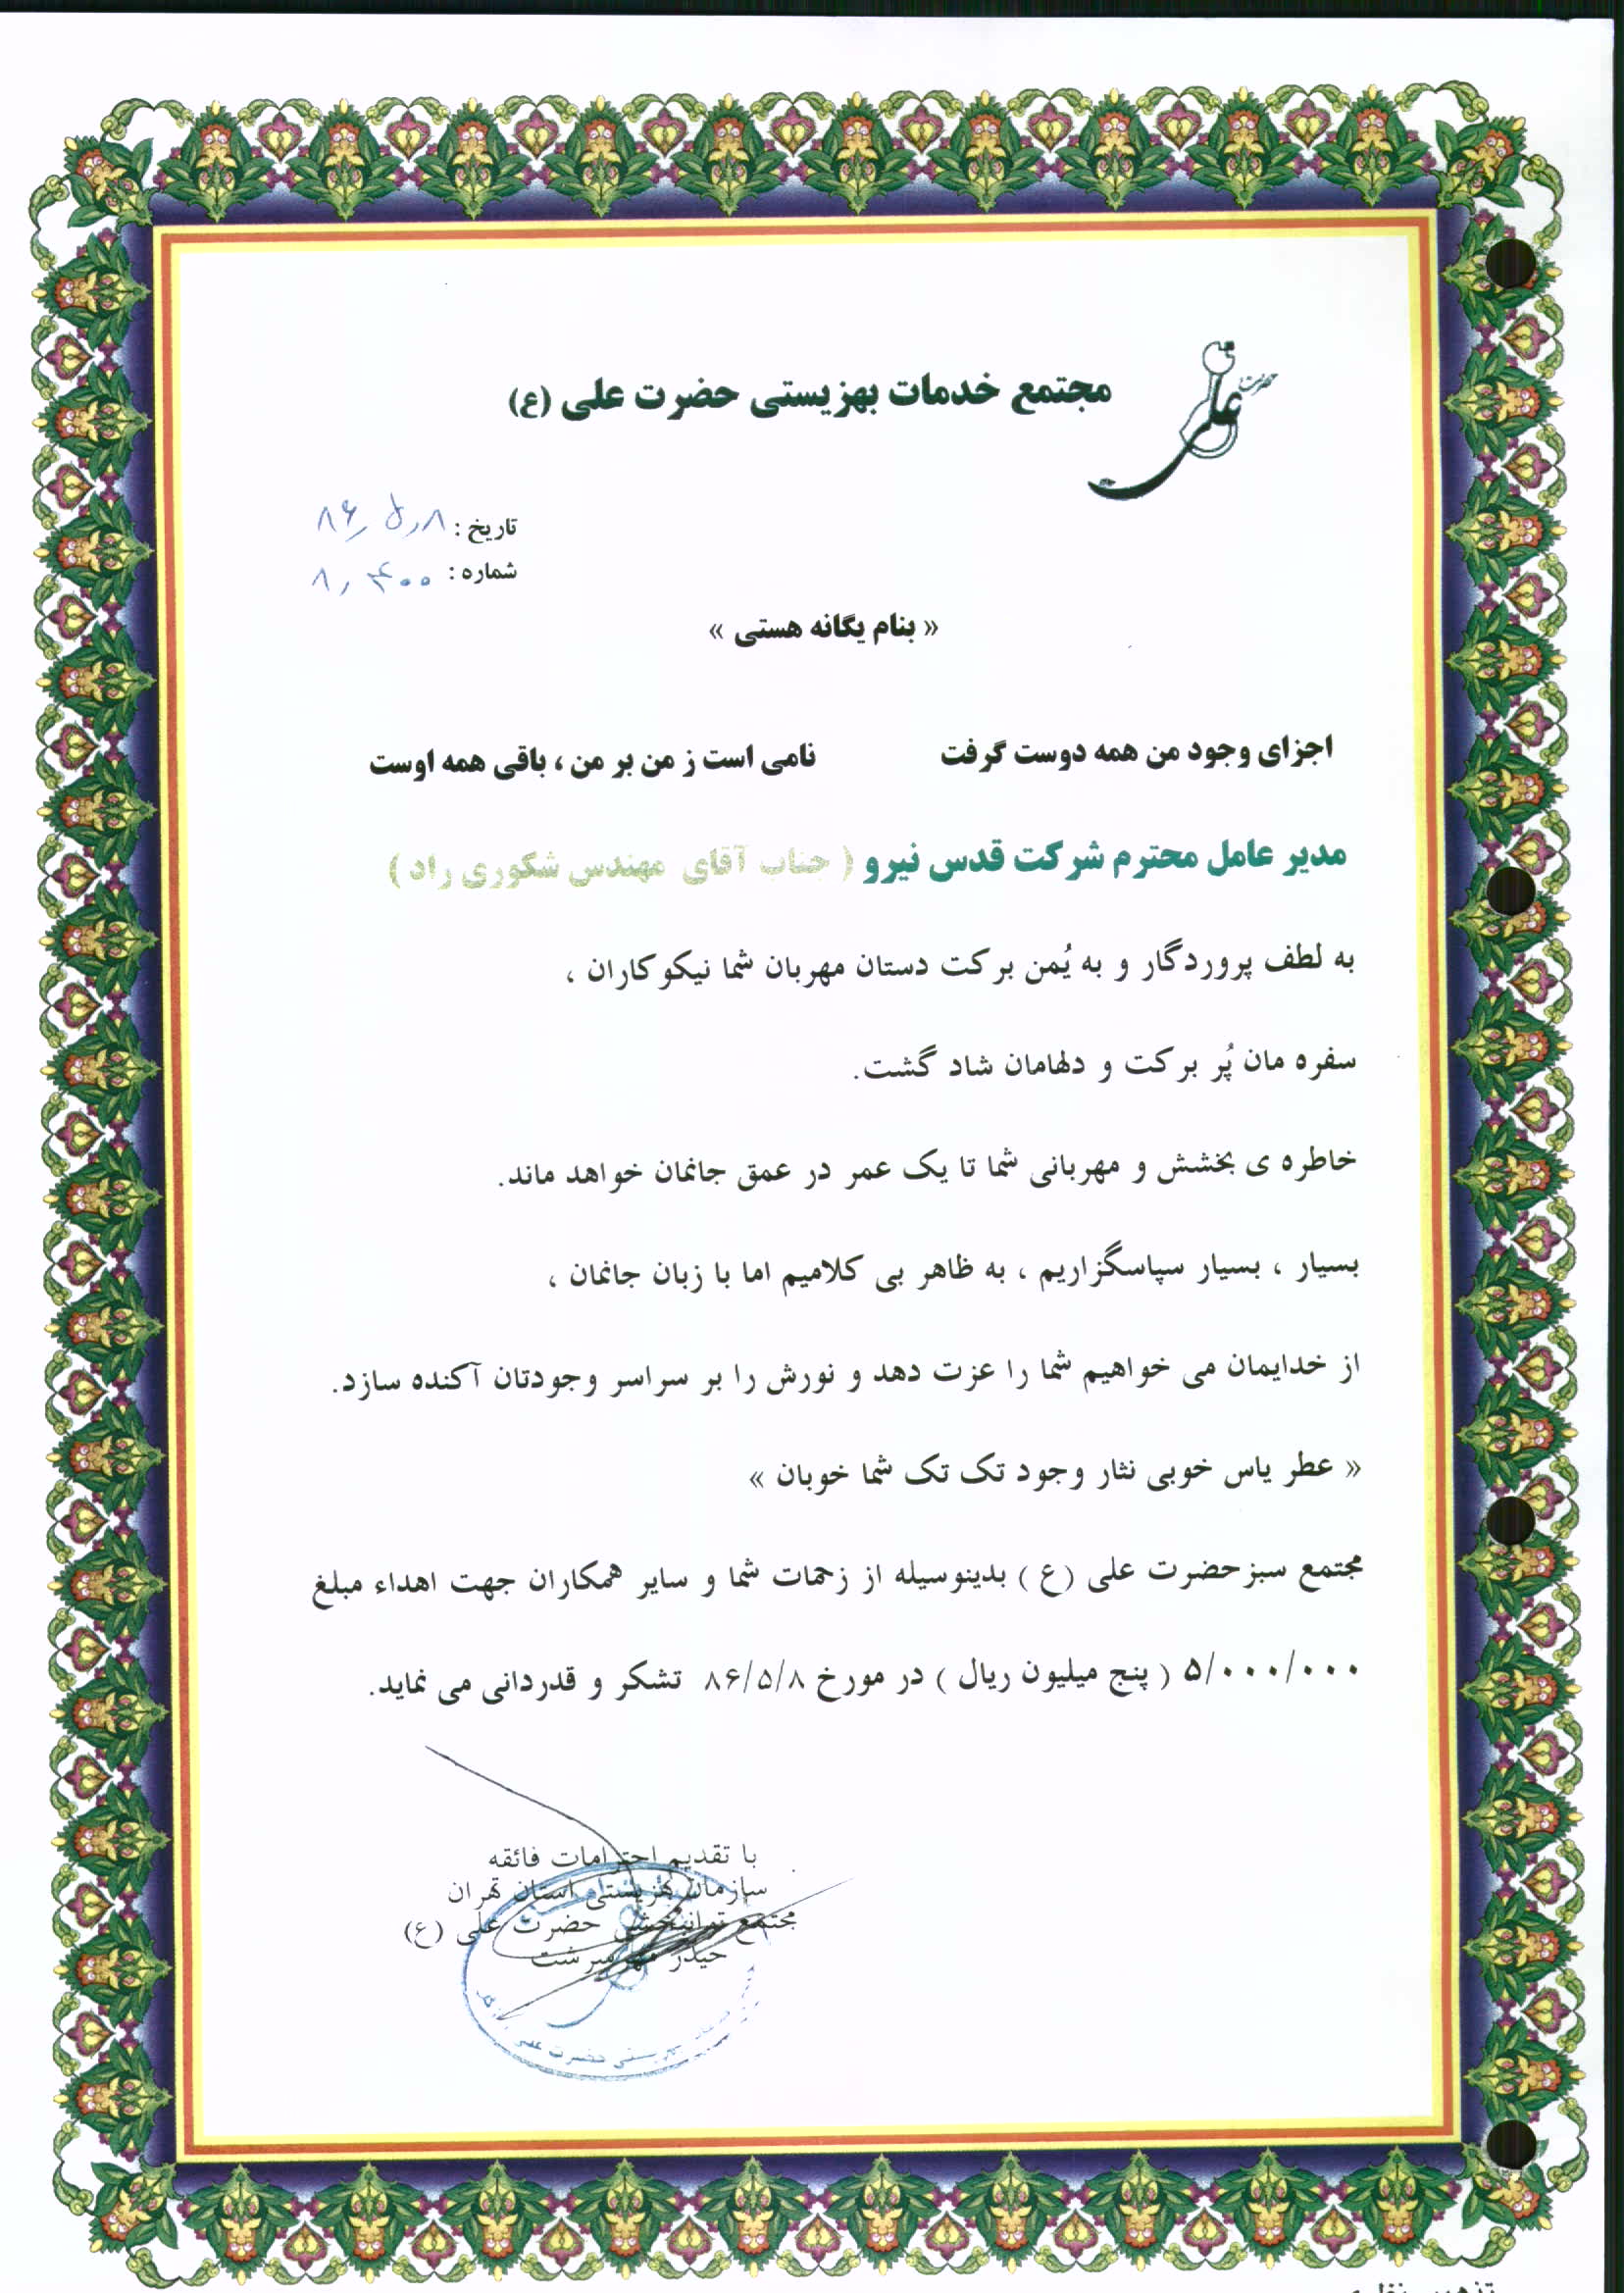 حضرت علی
مجتمع خدمات بهزیستی حضرت علی (ع)
تاریخ : ۸۶٫۵٫۸
شماره : ۸٫۴۰۰
« بنام یگانه هستی »
اجزای وجود من همه دوست گرفت نامی است ز من بر من ، باقی همه اوست
مدیر عامل محترم شرکت قدس نیرو ( جناب آقای مهندس شکوری راد )
به لطف پروردگار و به یُمن برکت دستان مهربان شما نیکوکاران ،
سفره مان پُر برکت و دلهامان شاد گشت.
خاطره ی بخشش و مهربانی شما تا یک عمر در عمق جانمان خواهد ماند.
بسیار ، بسیار سپاسگزاریم ، به ظاهر بی کلامیم اما با زبان جانمان ،
از خدایمان می خواهیم شما را عزت دهد و نورش را بر سراسر وجودتان آکنده سازد.
« عطر یاس خوبی نثار وجود تک تک شما خوبان »
مجتمع سبزحضرت علی (ع ) بدینوسیله از زحمات شما و سایر همکاران جهت اهداء مبلغ
۵/۰۰۰/۰۰۰ ( پنج میلیون ریال ) در مورخ ۸۶/۵/۸ تشکر و قدردانی می نماید.
با تقدیم احترامات فائقه
سازمان بهزیستی استان تهران
مجتمع توانبخشی حضرت علی (ع)
حیدر سرشت